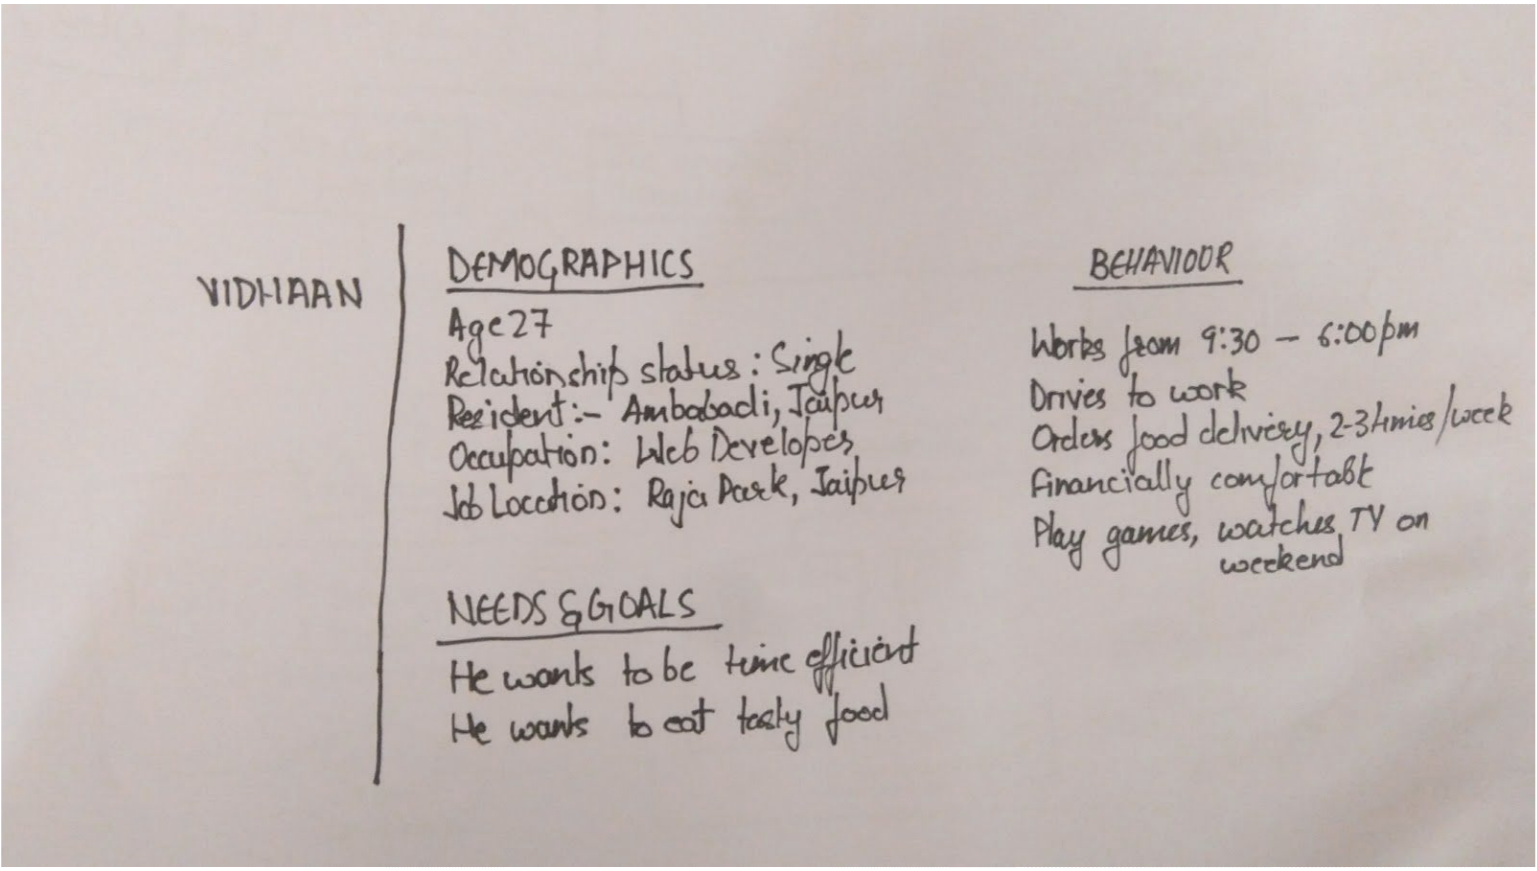 VIDHAAN
DEMOGRAPHICS
Age 27
Relationship status : Single
Resident :- Ambabadi, Jaipur
Occupation : Web Developer
Job Location : Raja Park, Jaipur
NEEDS & GOALS
He wants to be time efficient
He wants to eat tasty food
BEHAVIOUR
Works from 9:30 - 6:00pm
Drives to work
Orders food delivery, 2-3 times/week
financially comfortable
Play games, watches TV on
weekend